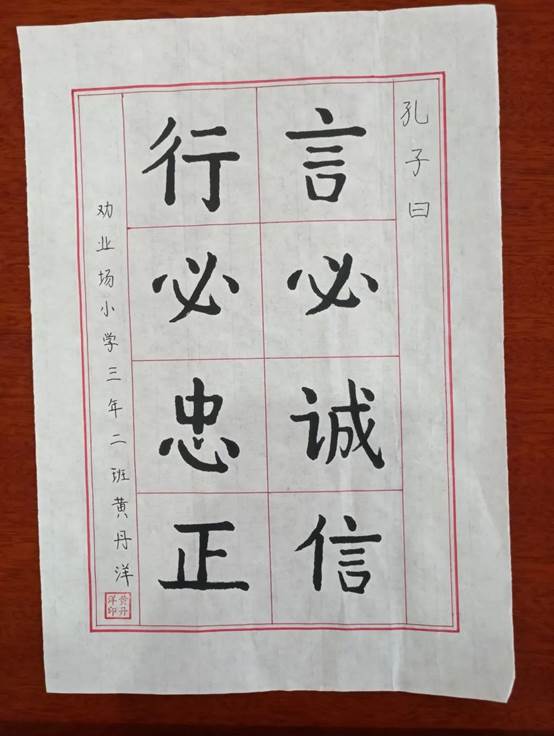 孔子曰
言必诚信
行必忠正
劝业场小学三年二班黄丹洋
黄丹洋印